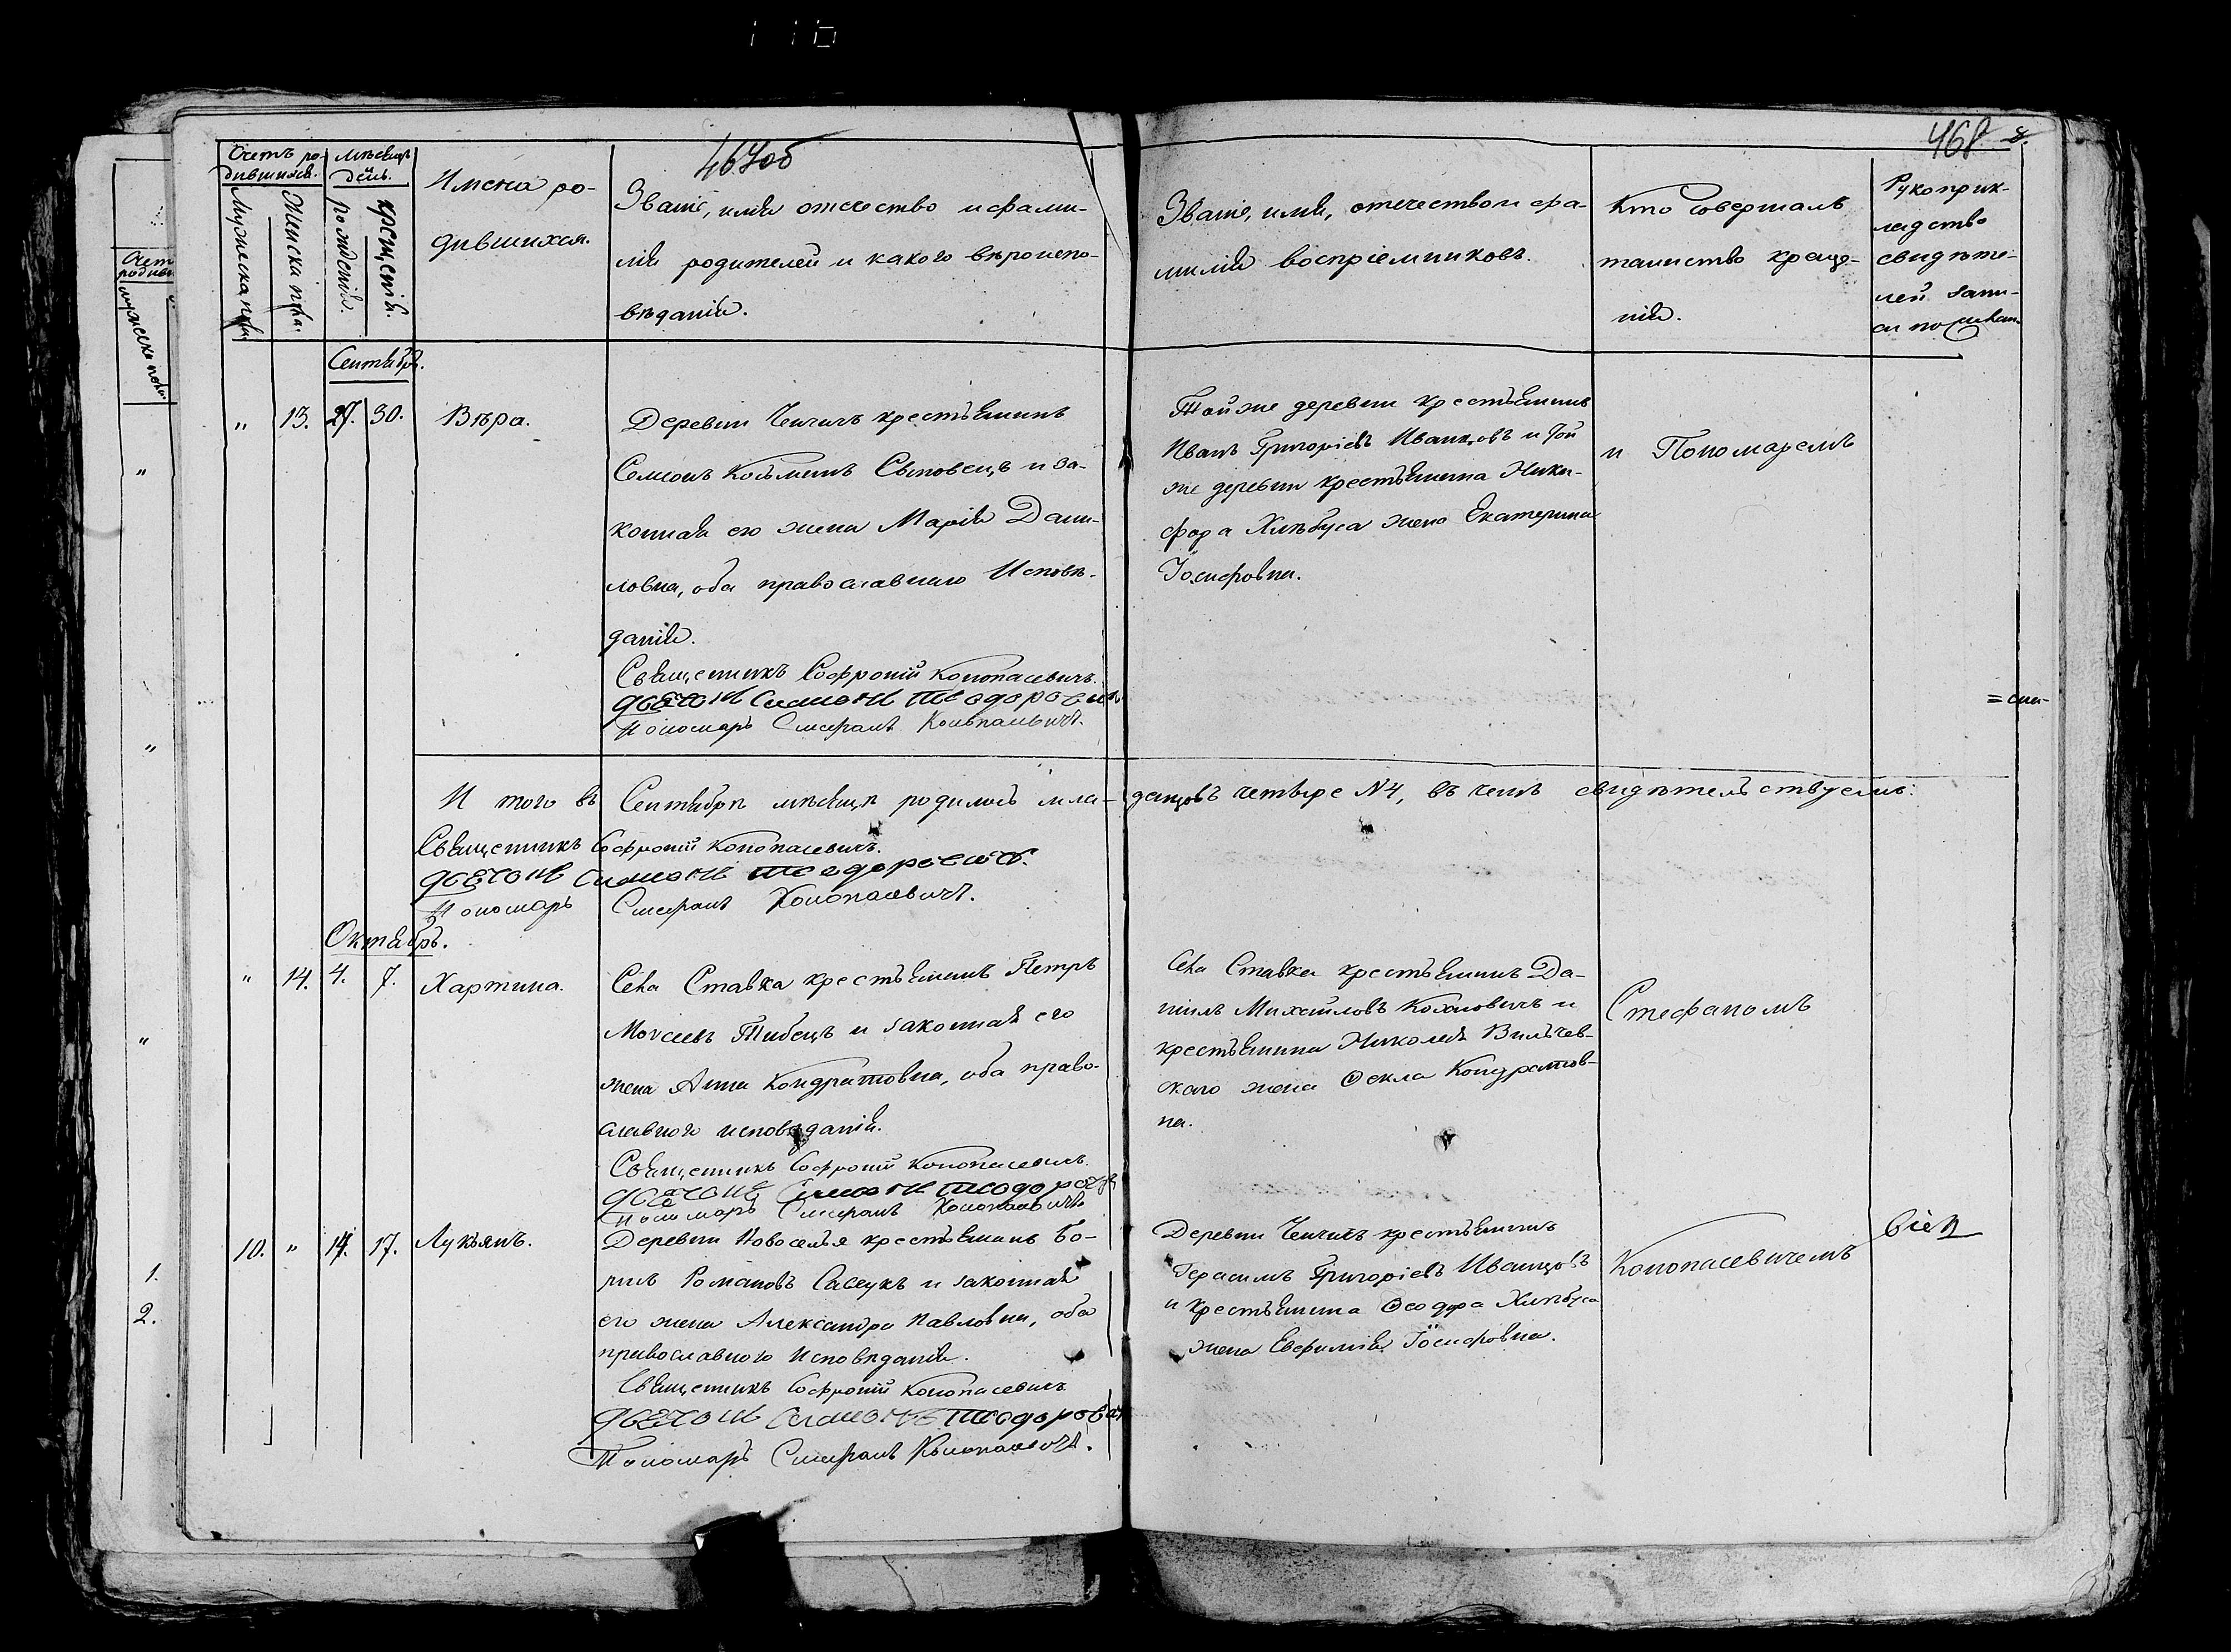 467об
468
Счетъ ро-
дившихся.
Мужеска пола
Женска пола.
Мѣсяцъ
день.
рожденія.
крещенія.
Имена ро-
дившихся.
Званіе, имя отечество и фами-
лія родителей и какого вѣроиспо-
вѣданія.
Званіе, имя, отечество и фа-
милія воспріемниковъ.
Кто совершалъ
таинство креще-
нія.
Рукоприк-
ладство
свидѣте-
лей запи-
си по желан.
Сентябрь.
" 13. 27. 30. Вѣра.
Деревни Ченчичъ крестьянинъ
Семіонъ Козьминъ Сыповецъ и за-
конная его жена Марія Дани-
ловна, оба православнаго Исповѣ-
данія.
Священникъ Софроній Конопасевичъ.
Дьячокъ Симонъ Теодоровичъ
Пономарь Стефанъ Конопасевичъ.
Той же деревни крестьянинъ
Иванъ Григоріевъ Иванцовъ и той
же деревни крестьянина Ники-
фора Хлѣбуса жена Екатерина
Іосифовна.
и Пономаремъ
И того въ Сентябрѣ мѣсяцѣ родилось мла-денцовъ четыре N4, въ чемъ свидѣтельствуемъ:
Священникъ Софроній Конопасевичъ.
Дьячокъ Симонъ Теодоровичъ.
Пономарь Стефанъ Конопасевичъ.
Октябрь.
" 14. 4. 7. Харитина.
Села Ставка крестьянинъ Петръ
Моѵсеевъ Тибецъ и законная его
жена Анна Кондратовна, оба право-
славнаго исповѣданія.
Священникъ Софроній Конопасевичъ.
Дьячокъ Симонъ Теодоровичъ
Пономарь Стефанъ Конопасевичъ.
Села Ставка крестьянинъ Да-
ніилъ Михаиловъ Кохновичъ и
крестьянина Николая Вильчев-
скаго жена Ѳекла Кондратов-
на.
Стефаномъ
10. " 14. 17. Лукьянъ.
Деревни Новоселья крестьянинъ Бо-
рисъ Романовъ Сасеукъ и законная
его жена Александра Павловна, оба
православнаго Исповѣданія.
Священникъ Софроній Конопасевичъ
Дьячокъ Симонъ Теодоровичъ
Пономарь Стефанъ Конопасевичъ.
Деревни Ченчичъ крестьянинъ
Герасимъ Григоріевъ Иванцовъ
и крестьянина Ѳеодора Хлѣбуса
жена Евфимія Іосифовна.
Конопасевичемъ